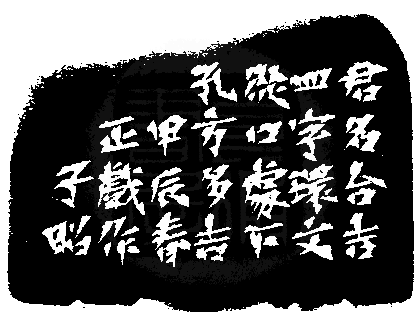 君名台吉
四字環文
從口處
孔方多吉
甲辰春
正戲作
子昭